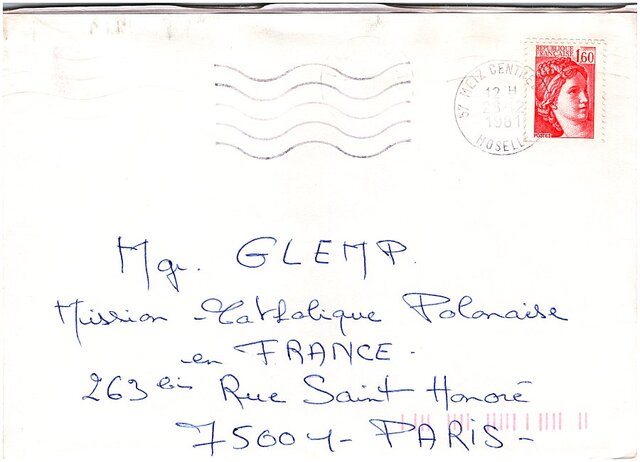 REPUBLIQUE
FRANÇAISE
1,60
POSTES
57 METZ CENTRE
12 H
1981
MOSELLE
Mgr. GLEMP.
Mission Catholique Polonaise
en FRANCE.
263 bis Rue Saint Honoré
75004 - PARIS -